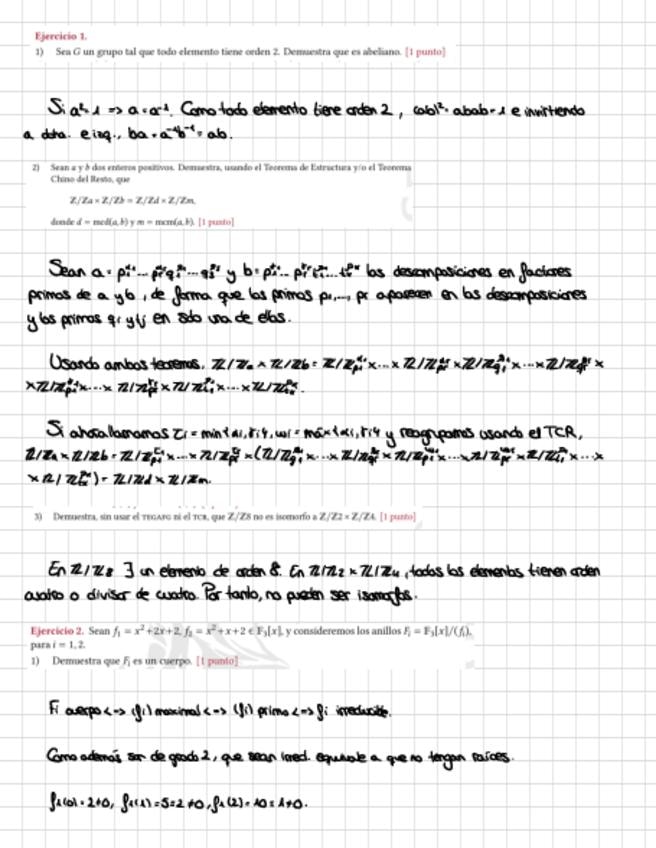 Ejercicio 1.
1) Sea G un grupo tal que todo elemento tiene orden 2. Demuestra que es abeliano. [1 punto]
Si a²=1 => a=a⁻¹. Como todo elemento tiene orden 2, (ab)²=abab=1 e invirtiendo
a dcha. e izq., ba=a⁻¹b⁻¹=ab.
2) Sean a y b dos enteros positivos. Demuestra, usando el Teorema de Estructura y/o el Teorema
Chino del Resto, que
Z/Za × Z/Zb ≅ Z/Zd × Z/Zm,
donde d = mcd(a, b) y m = mcm(a, b). [1 punto]
Sean a = y b = las descomposiciones en factores
primos de a y b, de forma que los primos p₁,..., pr aparecen en las descomposiciones
y los primos qi y tj en sólo una de ellas.
Usando ambos teoremas, Z/Za × Z/Zb =
Si ahora llamamos y reagrupamos usando el TCR,
Z/Za × Z/Zb =
= Z/Zd × Z/Zm.
3) Demuestra, sin usar el TEGAFG ni el TCR, que Z/Z8 no es isomorfo a Z/Z2 × Z/Z4. [1 punto]
En Z/Z8 ∃ un elemento de orden 8. En Z/Z2 × Z/Z4, todos los elementos tienen orden
cuatro o divisor de cuatro. Por tanto, no pueden ser isomorfos.
Ejercicio 2. Sean f₁ = x²+2x+2, f₂ = x²+x+2 ∈ F₃[x], y consideremos los anillos Fᵢ = F₃[x]/(fᵢ),
para i = 1,2.
1) Demuestra que Fᵢ es un cuerpo. [1 punto]
Fi cuerpo <=> (fi) maximal <=> (fi) primo <=> fi irreducible.
Como además son de grado 2, que sean irred. equivale a que no tengan raíces.
f₁(0)=2≠0, f₁(1)=5=2≠0, f₁(2)=10=1≠0.